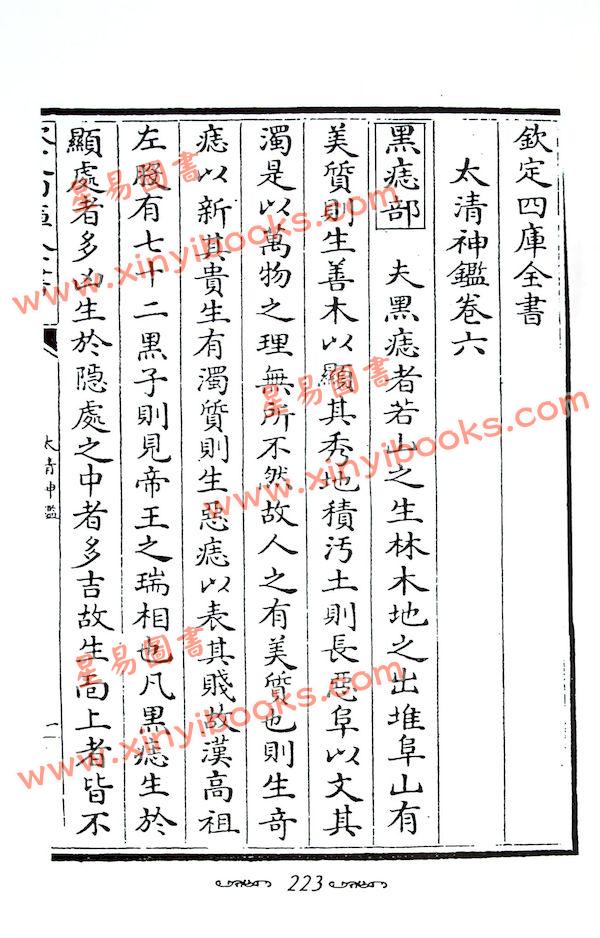 欽定四庫全書
太清神鑑卷六
黑痣部 夫黑痣者若山之生林木地之出堆阜山有
美質則生善木以顯其秀地積汚土則長惡阜以文其
濁是以萬物之理無所不然故人之有美質也則生奇
痣以新其貴生有濁質則生惡痣以表其賤故漢高祖
左股有七十二黑子則見帝王之瑞相也凡黑痣生於
顯處者多凶生於隱處之中者多吉故生靣上者皆不
太清神鑑
一
223
星易圖書
www.xinyibooks.com
星易圖書
www.xinyibooks.com
星易圖書
www.xinyibooks.com